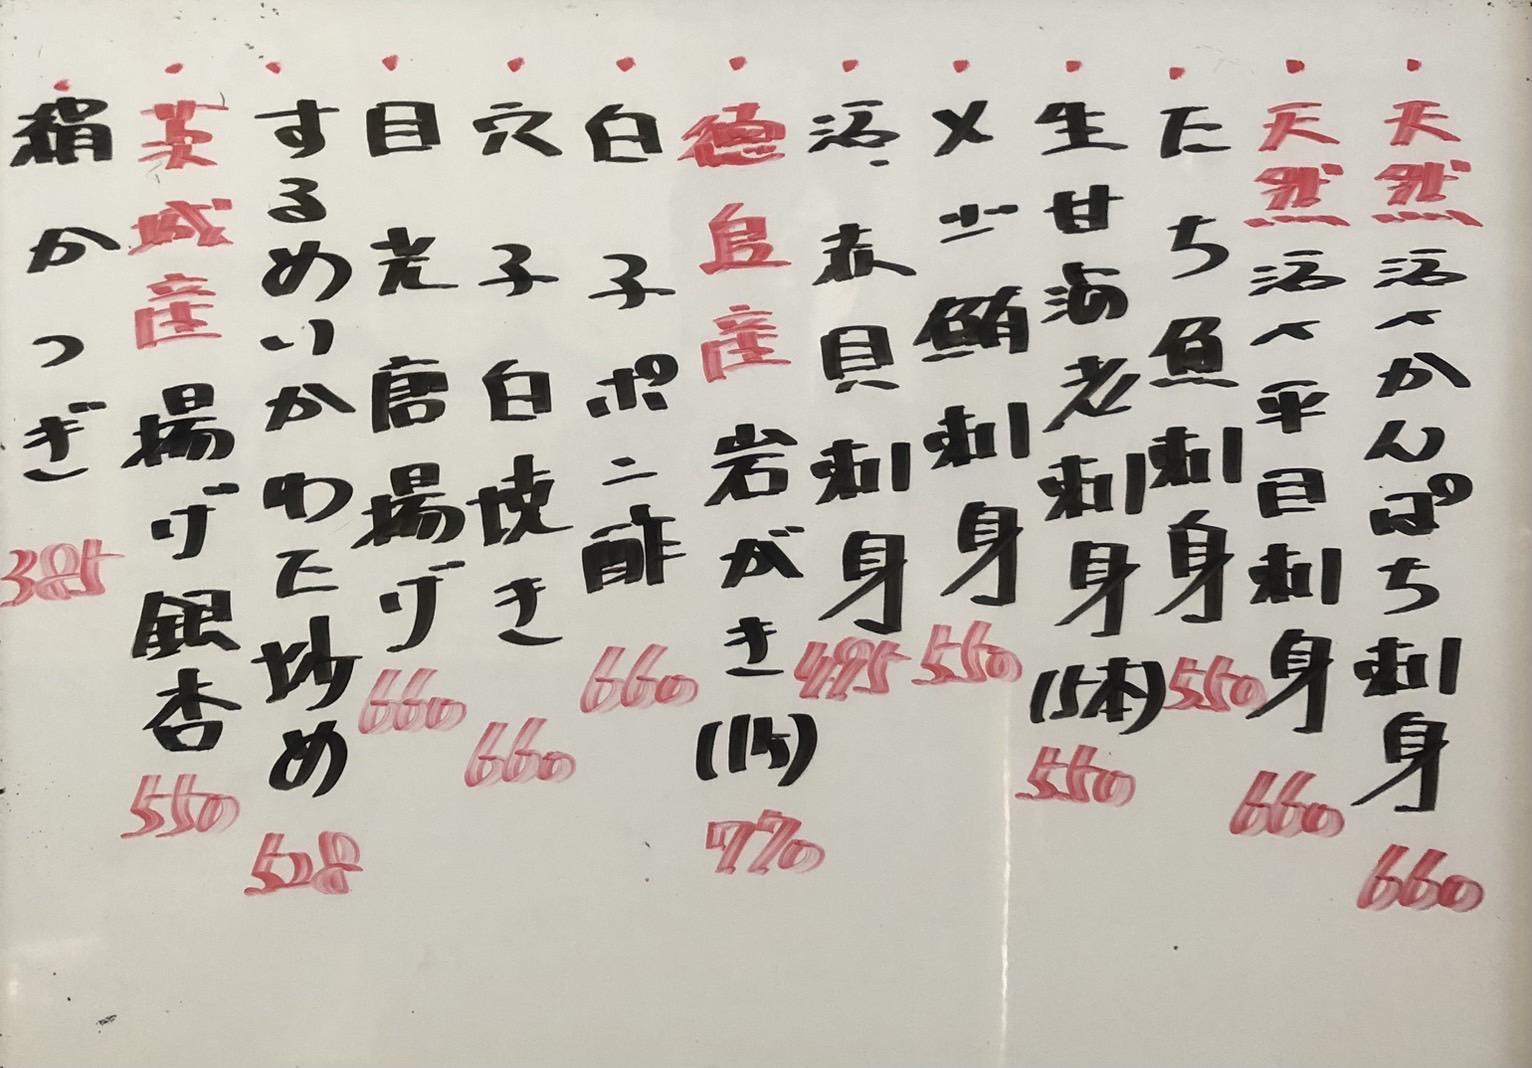 ・天然活〆かんぱち刺身 660
・天然活〆平目刺身 660
・たち魚刺身 550
・生甘海老刺身(5本) 550
・メジ鮪刺身 550
・活赤貝刺身 495
・徳島産岩がき(1ケ) 770
・白子ポン酢 660
・穴子白焼き 660
・目光唐揚げ 660
・するめいかわた炒め 528
・茨城産揚げ銀杏 550
・絹かつぎ 385